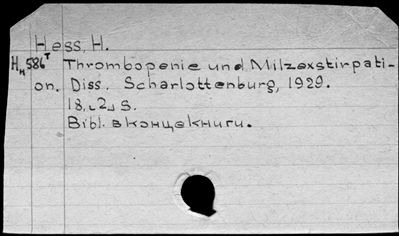 Hess, H.
Hн586т Thrombopenie und Milzexstirpati-
on. Diss. Scharlottenburg, 1929.
18, ⌞2⌟ S.
Bibl. в конце книги.